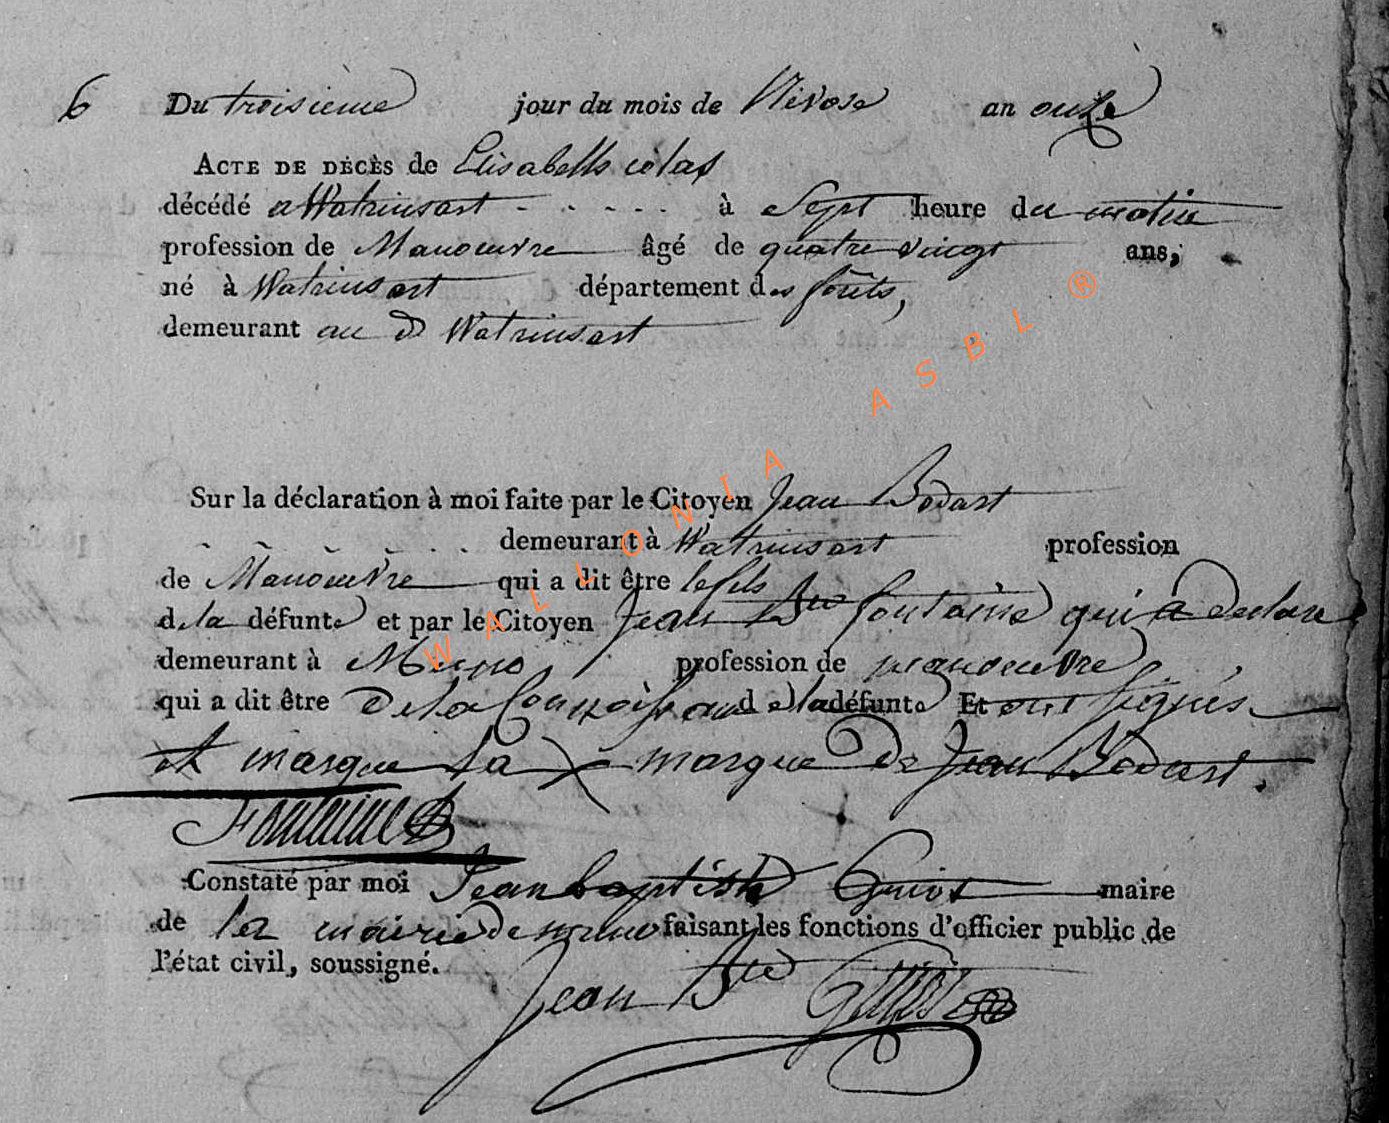 6 Du troisieme jour du mois de Nivose an onze
ACTE DE DÉCÈS de Elisabeth colas
décédé a Watrinsart - - - - - à Sept heure du matin
profession de Manoeuvre âgé de quatre vingt ans,
né à Watrinsart département des forêts,
demeurant au d Watrinsart
Sur la déclaration à moi faite par le Citoyen Jean Bodart
- - - - - - - demeurant à Watrinsart profession
de Manoeuvre qui a dit être le fils
de la défunte et par le Citoyen Jean Bte fontaine qui a declare
demeurant à Muno, profession de manoeuvre
qui a dit être De la Connoissance de la défunte Et ont signés
et marque la X marque De Jean Bodart.
Fontaine
Constaté par moi Jean baptiste Guiot maire
de la mairie de muno faisant les fonctions d'officier public de
l'état civil, soussigné.
Jean Bte Guiot
WALLONIA ASBL ®